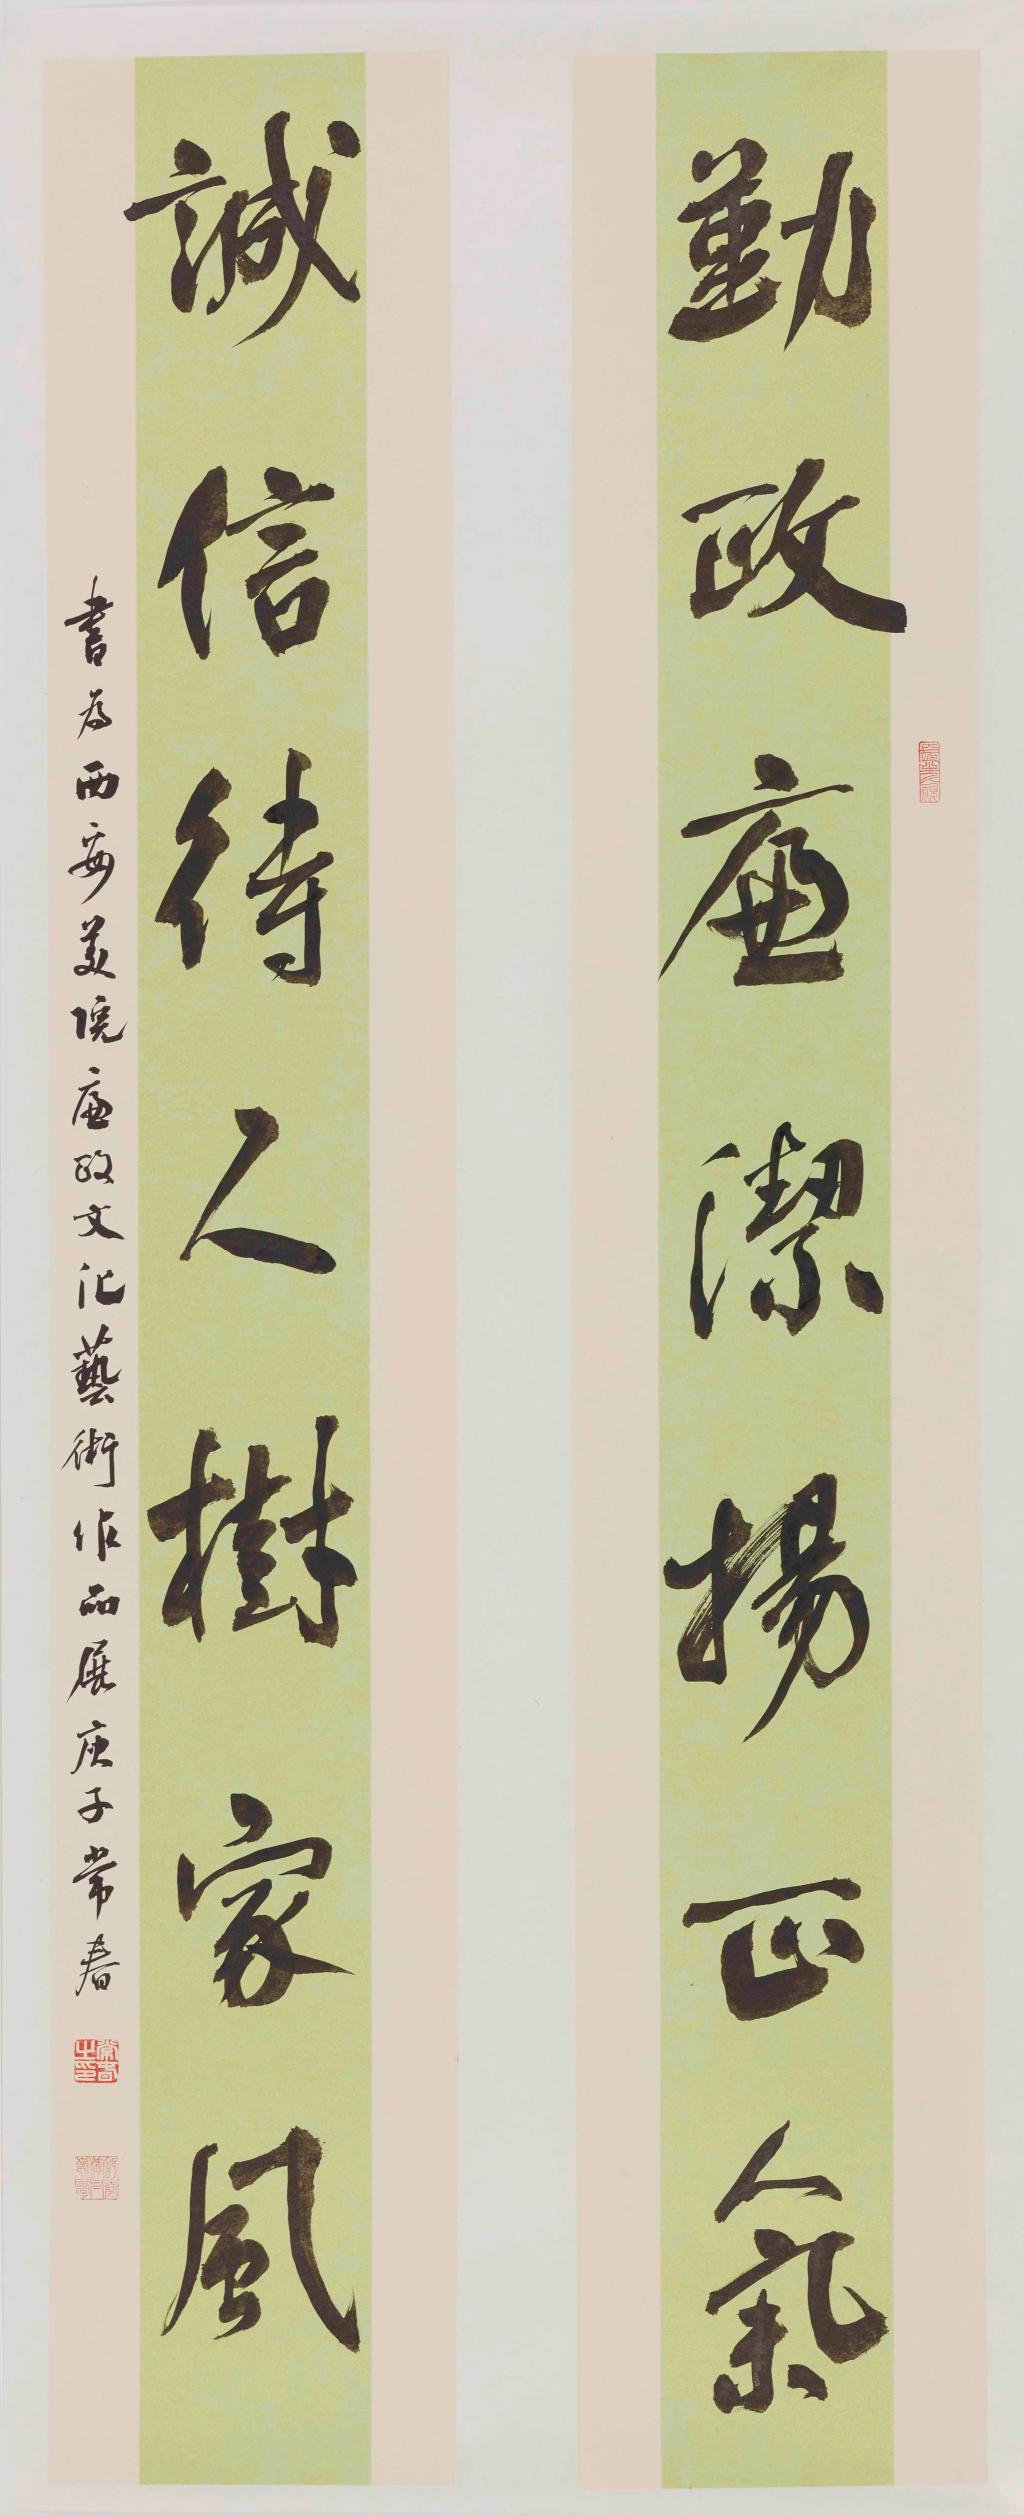 勤政廉潔揚正氣
誠信待人樹家風
書為西安美院廉政文化藝術作品展庚子常春
常春之印